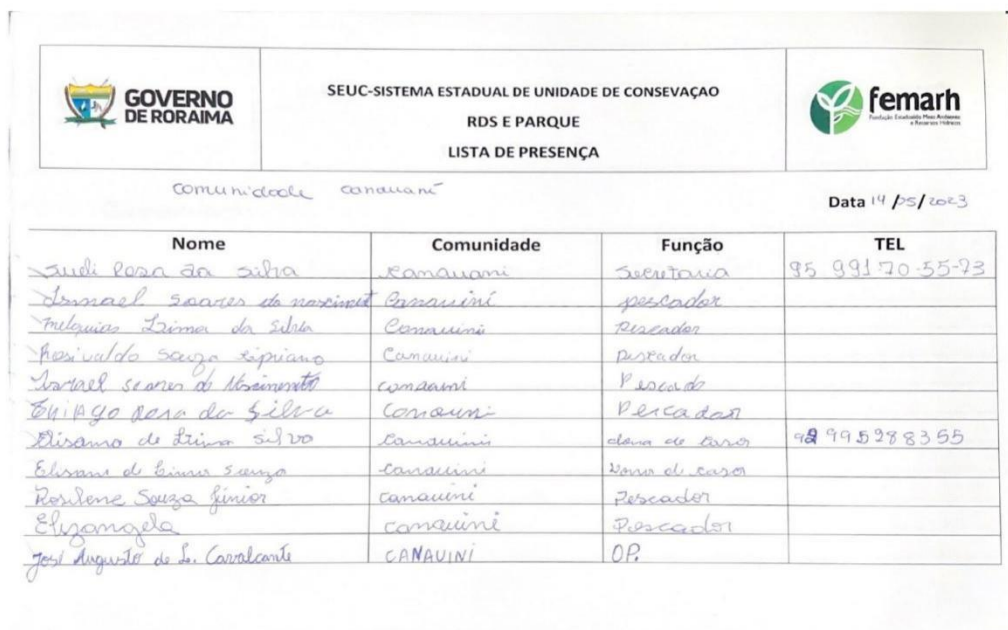 GOVERNO
DE RORAIMA
SEUC-SISTEMA ESTADUAL DE UNIDADE DE CONSEVAÇAO
RDS E PARQUE
LISTA DE PRESENÇA
femarh
comunidade canauaní
Data 14/05/2023
Nome Comunidade Função TEL
Sueli Rosa da silva Canauani Secretaria 95 99170-55-73
Ismael Soares do nasciment Canauiní pescador
da Silva Canauini Pescador
Rosivaldo Souza cipriano Canauini pescador
soares do Nascimento canaauni Pescado
THIAGO Rosa da Silva Canauni Percador
de Lima Silva Canauini dona de casa 92 995288355
de Lima Souza Canauini Dona de casa
Rosilene Souza Júnior canauini Pescador
Elizangela canauini Pescador
José Augusto de L. Cavalcante CANAUINI OP.